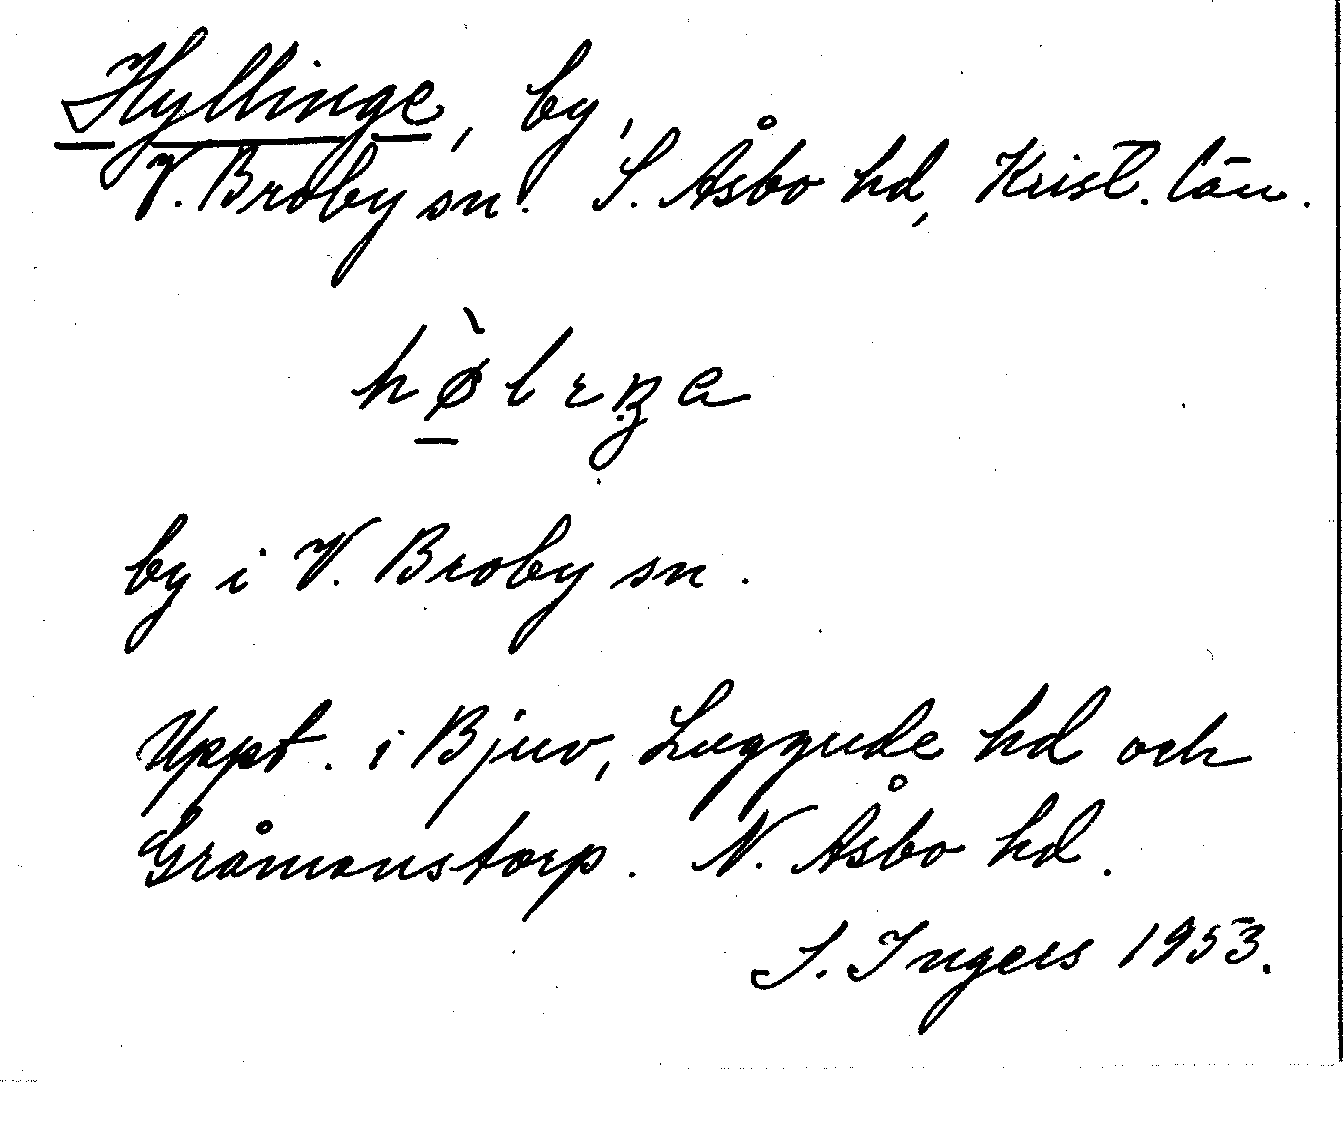 Hyllinge, by,
V. Broby sn. S. Åsbo hd, Krist. län.
by i V. Broby sn.
Uppt. i Bjuv, Luggude hd och
Gråmanstorp. N. Åsbo hd.
I. Ingers 1953.